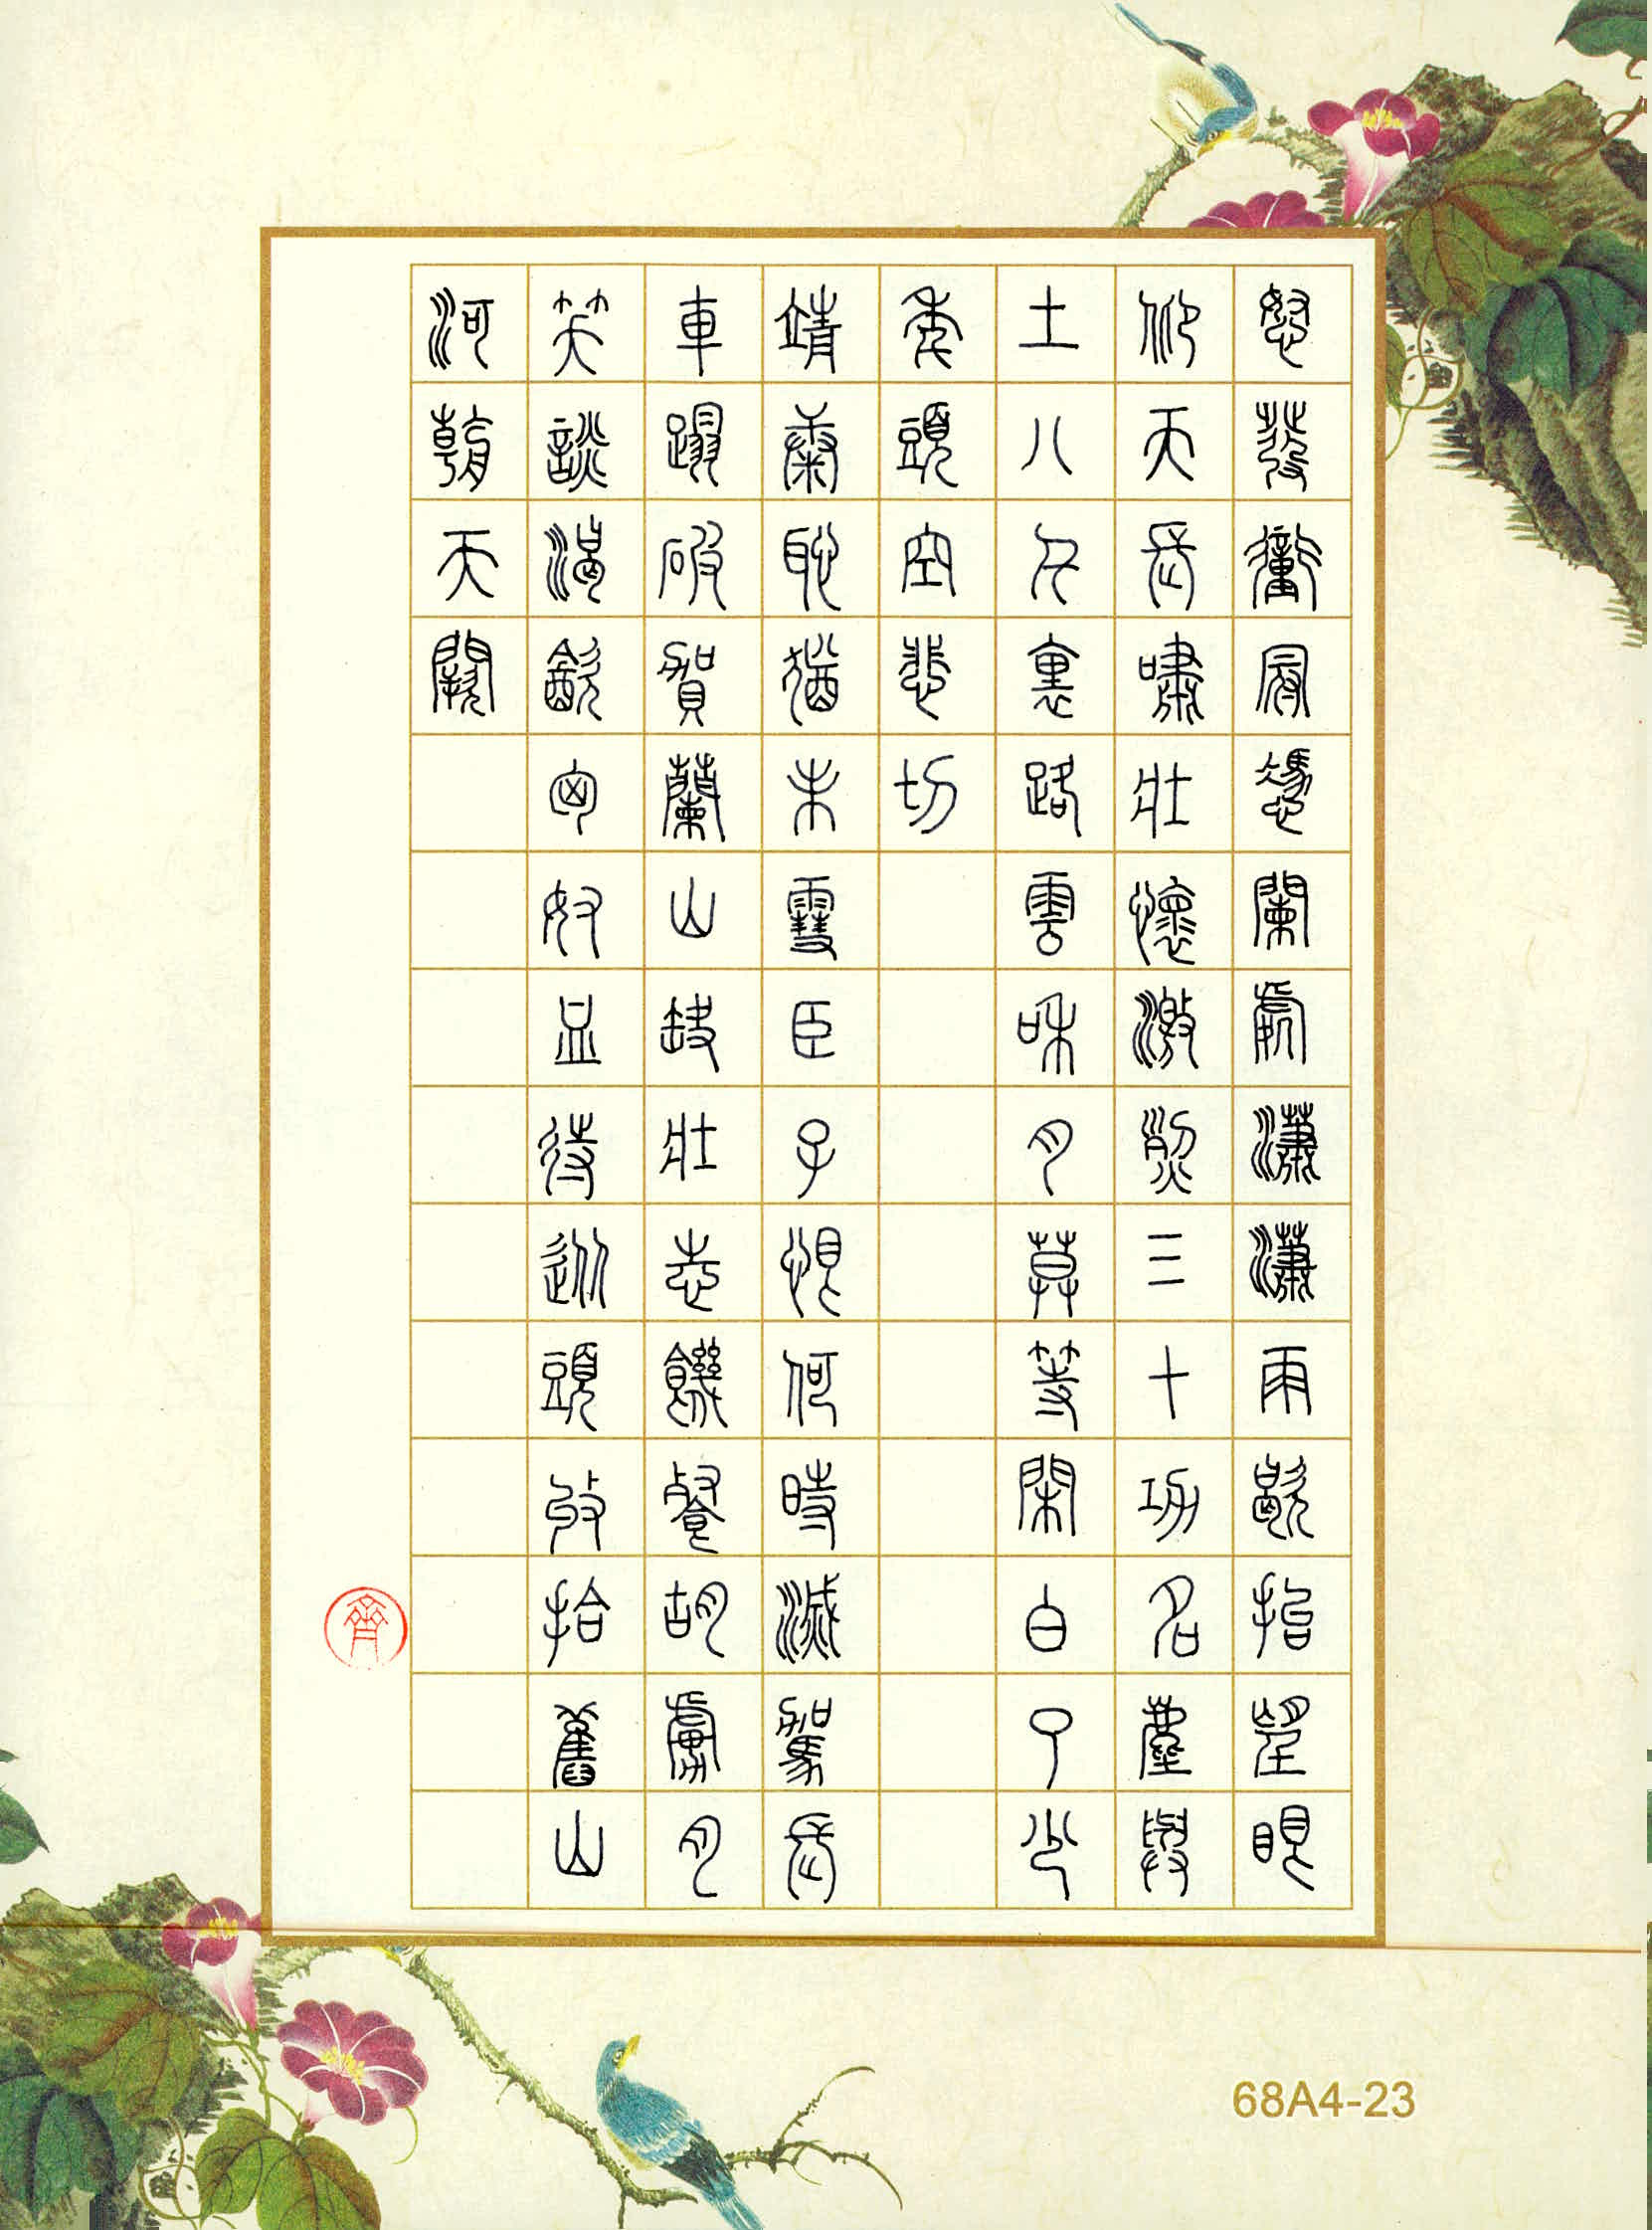 怒髮衝冠憑闌處瀟瀟雨歇抬望眼
仰天長嘯壯懷激烈三十功名塵與
土八千裏路雲和月莫等閑白了少
年頭空悲切
靖康恥猶未雪臣子恨何時滅駕長
車蹋破賀蘭山缺壯志饑餐胡虜肉
笑談渴飲匈奴血待從頭收拾舊山
河朝天闕
齊
68A4-23